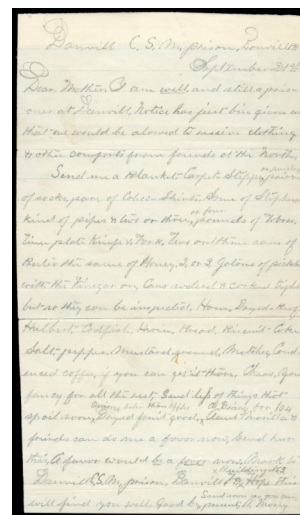 Danvill C. S. M. prison, Danvill
September 21st
Dear Mother, I am well and still a prison
oner at Danvill, Notice has just bin given us
that we would be alowed to receive clothing
& other comforts from friends at the North,
Send me a blanket Carpets Slippers, pair
of socks, pare of Coleen Shirts, Some of Stephens
kind of pipes & two or three pounds of Tobac,
Tin plate Knife & Fork, Two or three cans of
Butter the same of Honey, 2 or 3 Galons of pickels
with the Vinegar on, Cans sealed & corked tight
but so they can be inspected, Ham, Dryed Beef
Halbert, Codfish, Bread, Biscuit Cake
Salt, pepper, Mustard ground, Matches, Cond
enced coffee, if you can get it there, Cheas, you
fancy for all the rest, Send less of things that
spoil soon, Dryed fruit good, Aunt
friends can do me a favor now, Send
this, A favor would be a favor now, Mark to
Danvill C.S. M. prison, Danvill Va, Hope this
Send soon as you can
will find you well, Good by,